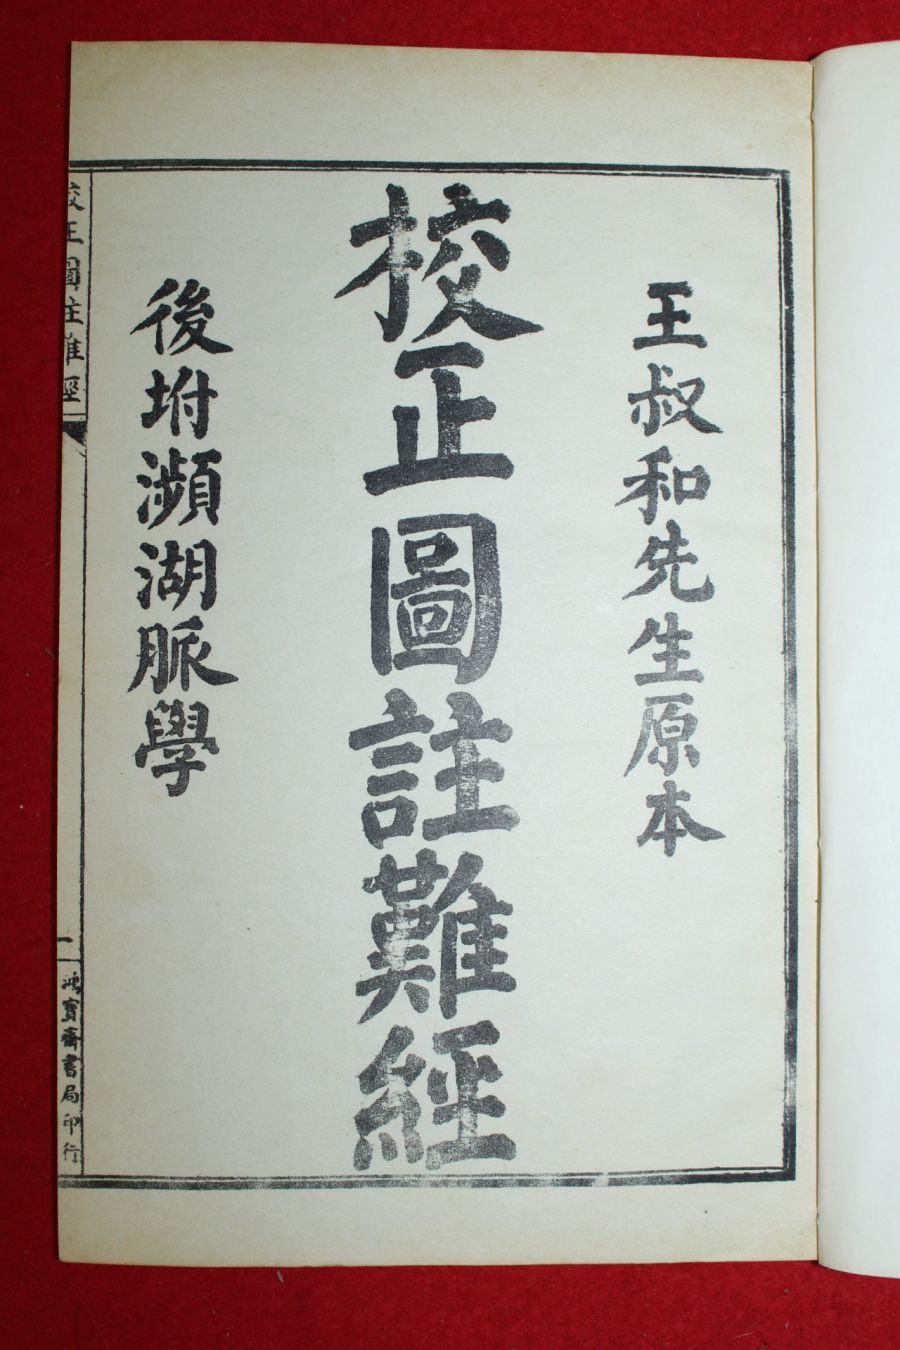 王叔和先生原本
校正圖註難經
後坿瀕湖脈學
校正圖註難經
一
鴻寶齋書局印行